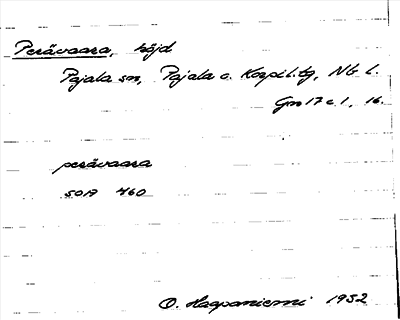 Perävaara, höjd
Pajala sn, Pajala o. Korpil. tg, Nb l.
Gm 17 c 1, 16.
perävaara
5017 460
O. Haapaniemi 1932